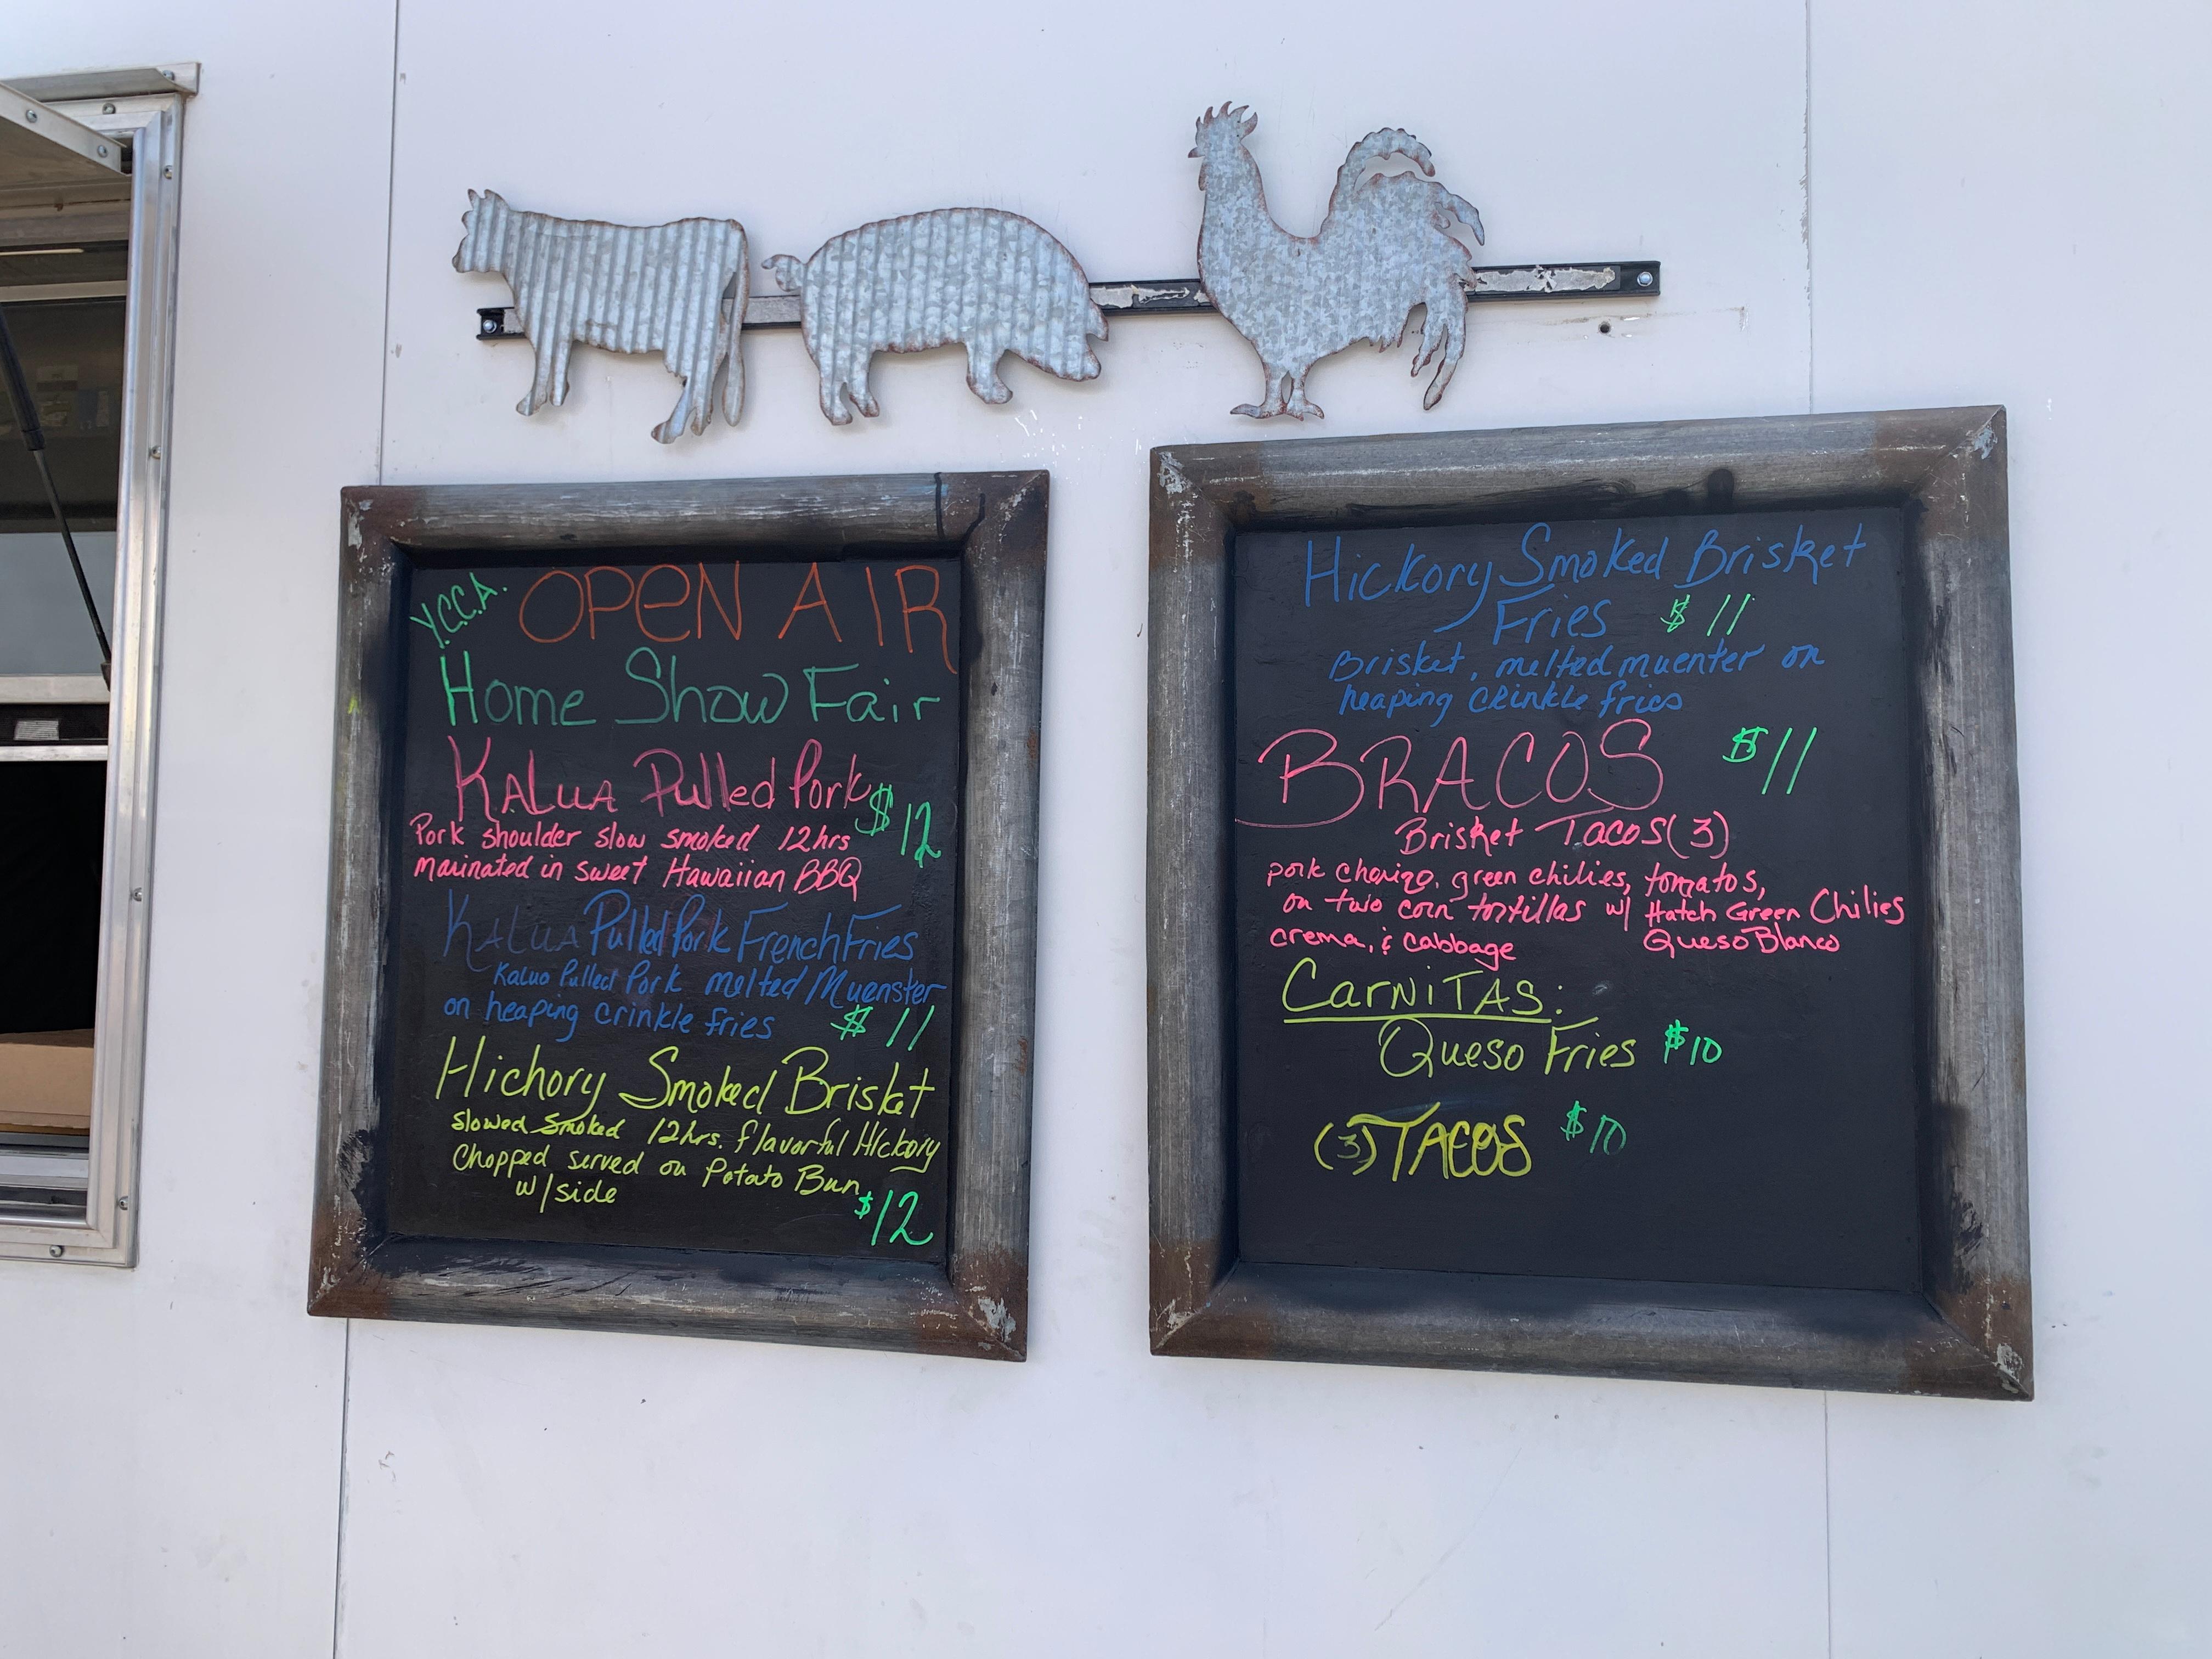 Y.C.C.A. OPEN AIR
Home Show Fair
KALUA Pulled Pork
$12
Pork shoulder slow smoked 12hrs
marinated in sweet Hawaiian BBQ
KALUA Pulled Pork French Fries
Kaluo Pulled Pork melted Muenster
on heaping crinkle fries $11
Hichory Smoked Brisket
slowed smoked 12hrs. flavorful Hickory
Chopped served on Potato Bun
w/side
$12
Hickory Smoked Brisket
Fries $11
Brisket, melted muenter on
heaping crinkle fries
BRACOS $11
Brisket Tacos (3)
pork chorizo, green chilies, tomatos,
on two corn tortillas w/ Hatch Green Chilies
crema, & cabbage Queso Blanco
CarniTAS:
Queso Fries $10
(3) TACOS $10